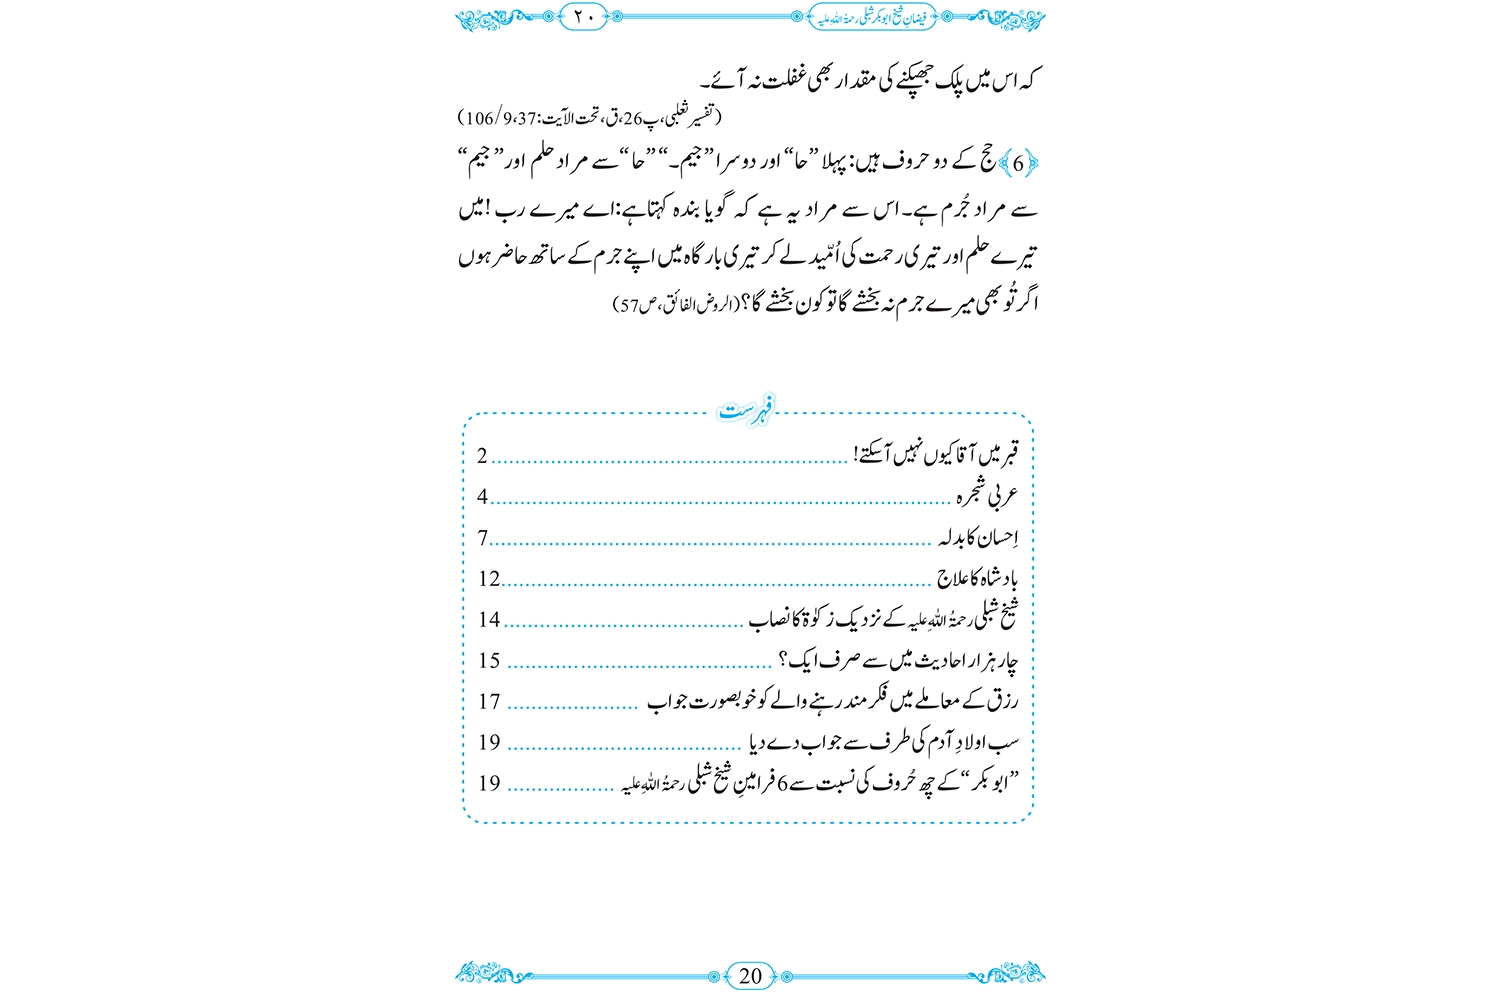 فیضانِ شیخ ابو بکر شبلی رحمۃُ اللہِ علیہ
۲۰
کہ اس میں پلک جھپکنے کی مقدار بھی غفلت نہ آئے۔
(تفسیر ثعلبی، پ26،ق، تحت الآیت:37، 106/9)
﴿6﴾ حج کے دو حروف ہیں: پہلا ”حا“ اور دوسرا ”جیم۔“ ”حا“ سے مراد حلم اور ”جیم“
سے مراد جُرم ہے۔ اس سے مراد یہ ہے کہ گویا بندہ کہتا ہے: اے میرے رب! میں
تیرے حلم اور تیری رحمت کی اُمّید لے کر تیری بارگاہ میں اپنے جرم کے ساتھ حاضر ہوں
اگر تُو بھی میرے جرم نہ بخشے گا تو کون بخشے گا؟ (الروض الفائق، ص57)
فہرست
قبر میں آقا کیوں نہیں آسکتے! .......... 2
عربی شجرہ .......... 4
اِحسان کا بدلہ .......... 7
بادشاہ کا علاج .......... 12
شیخ شبلی رحمۃُ اللہِ علیہ کے نزدیک زکوٰۃ کا نصاب .......... 14
چار ہزار احادیث میں سے صرف ایک؟ .......... 15
رزق کے معاملے میں فکر مند رہنے والے کو خوبصورت جواب .......... 17
سب اولادِ آدم کی طرف سے جواب دے دیا .......... 19
”ابو بکر“ کے چھ حُروف کی نسبت سے 6 فرامینِ شیخ شبلی رحمۃُ اللہِ علیہ .......... 19
20